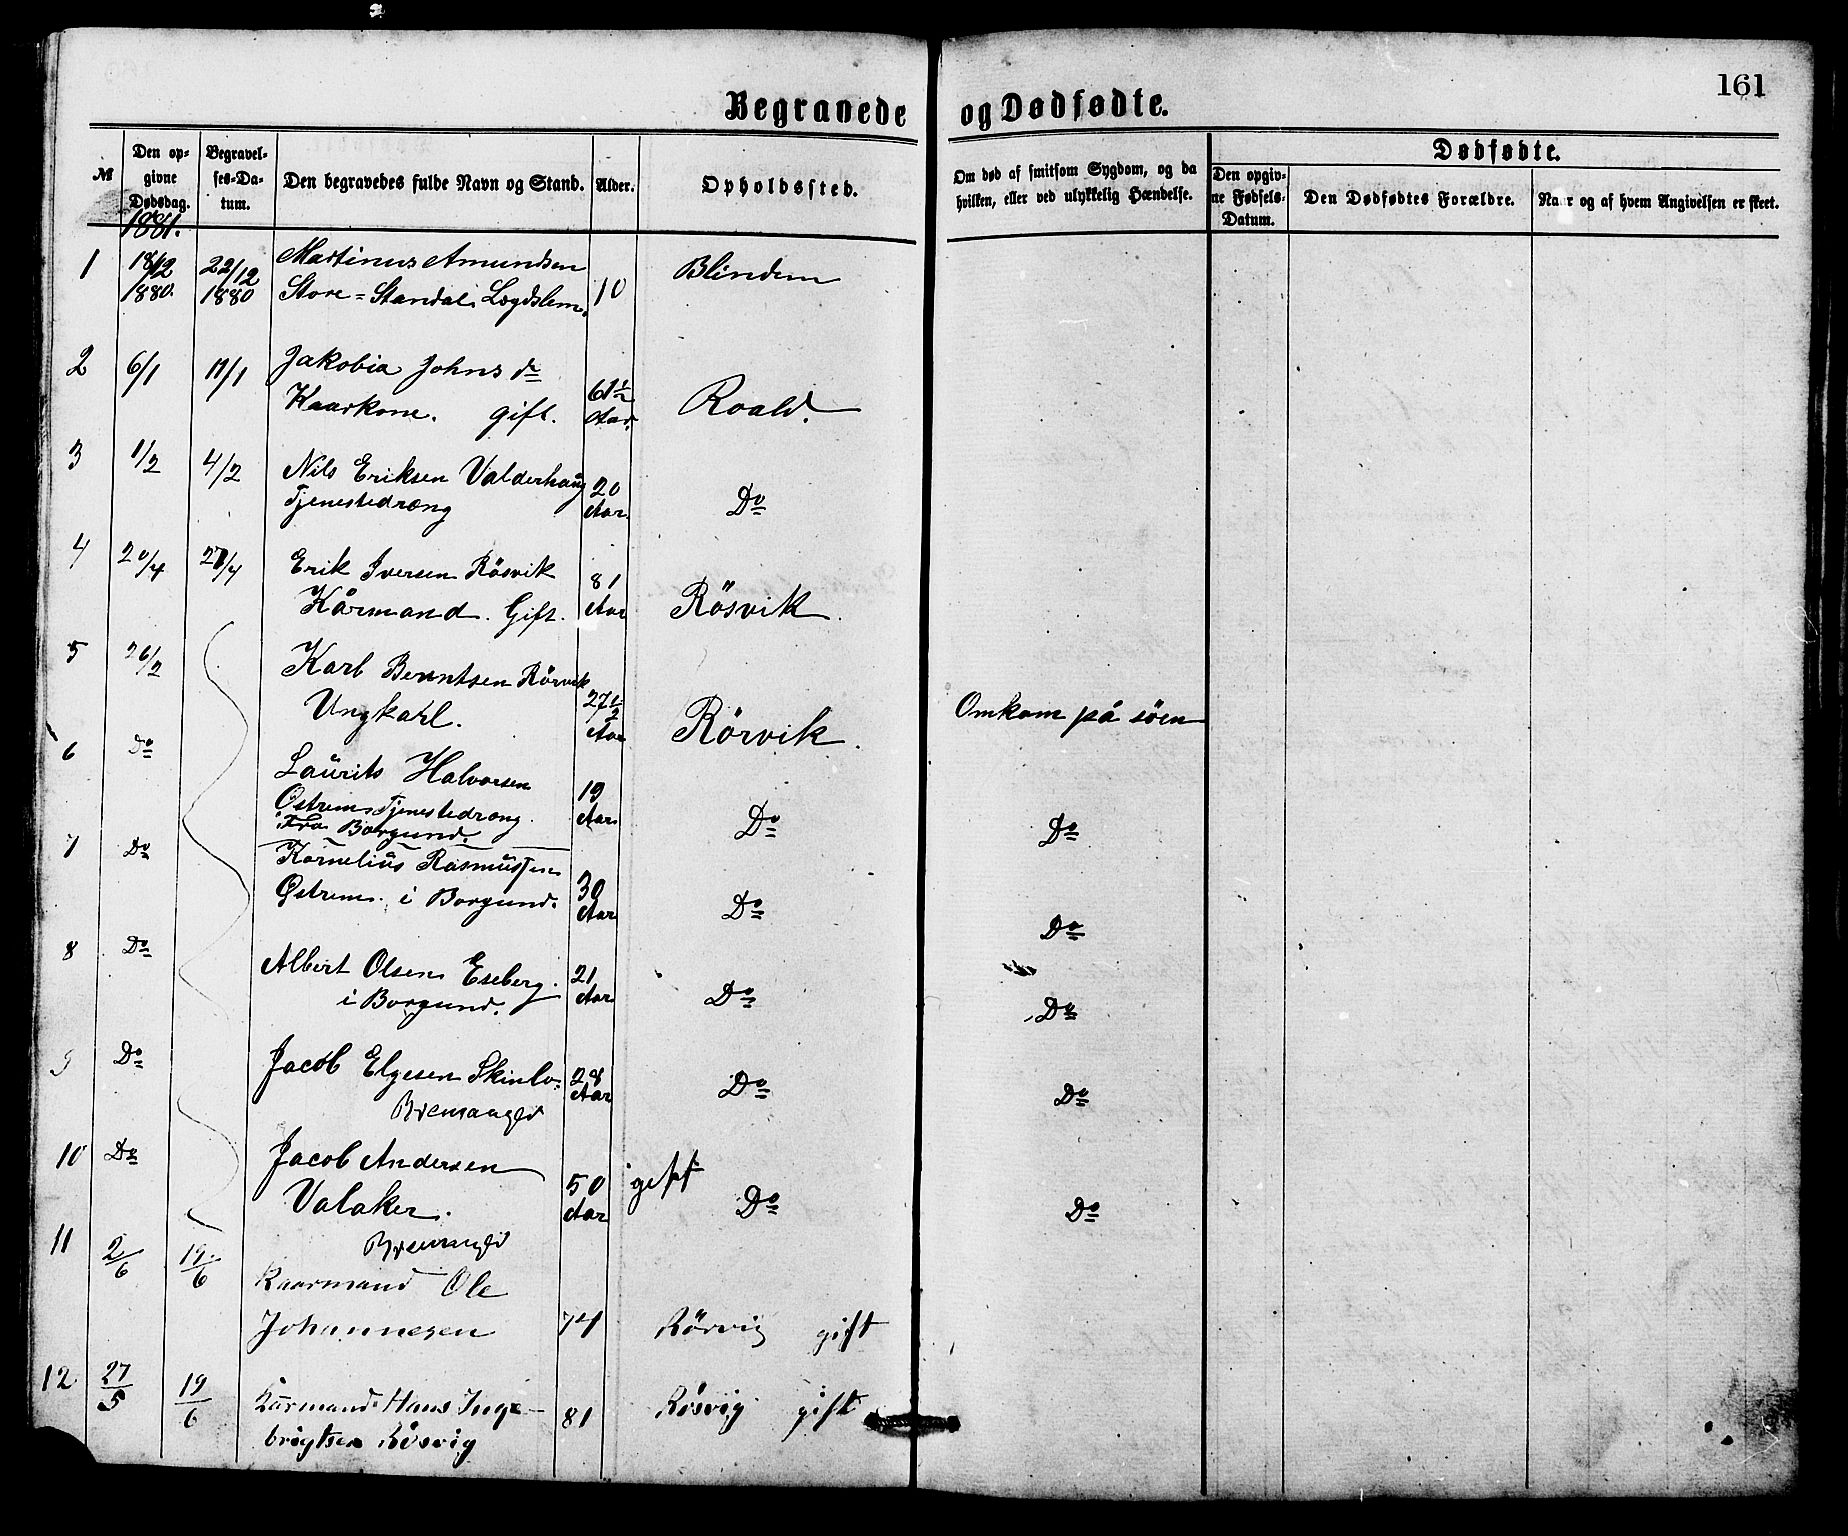 161
Begravede og Dødfødte.
№
Den opgivne Dødsdag.
Begravelses-Datum.
Den begravedes fulde Navn og Stand.
Alder.
Opholdssted.
Om død af smitsom Sygdom, og da hvilken, eller ved ulykkelig Hændelse.
Dødfødte.
Den opgivne Fødsels-Datum.
Den Dødfødtes Forældre.
Naar og af hvem Angivelsen er skeet.
1881.
1 18/12 22/12 Martinus Amundsen Blindem
1880. 1880 Store=Standal. Lægdslem. 10
2 6/1 17/1 Jakobia Johns dr
Kaarkone. gift. 61½ Aar. Roald.
3 1/2 4/2 Nils Eriksen Valderhaug
Tjenestedræng 20 Aar. Do
4 20/4 27/4 Erik Iversen Rösvik 81
Kårmand. Gift. Aar Rösvik.
5 26/2 Karl Berntsen Rörvik
Ungkarl. 27½ Aar Rörvik. Omkom på söen
6 Do Laurits Halvorsen 19
Östrem Tjenestedræng. Aar. Do Do
Fra Borgund.
7 Do Kornelius Rasmussen
Østrem. i Borgund. 30 Aar Do Do
8 Do Albert Olsen Eseberg. 21
i Borgund. Aar Do Do
9 Do Jacob Elgesen Skinlo. 28 Aar Do Do
Bremanger
10 Do Jacob Andersen
Valaker. 50 Aar gift Do Do
Bremanger
11 2/6 19/6 Kaarmand Ole
Johannesen 74 Rörvig gift
12 27/5 19/6 Kårmand Hans Inge-
brigtsen Rösvig 81 Rösvig gift